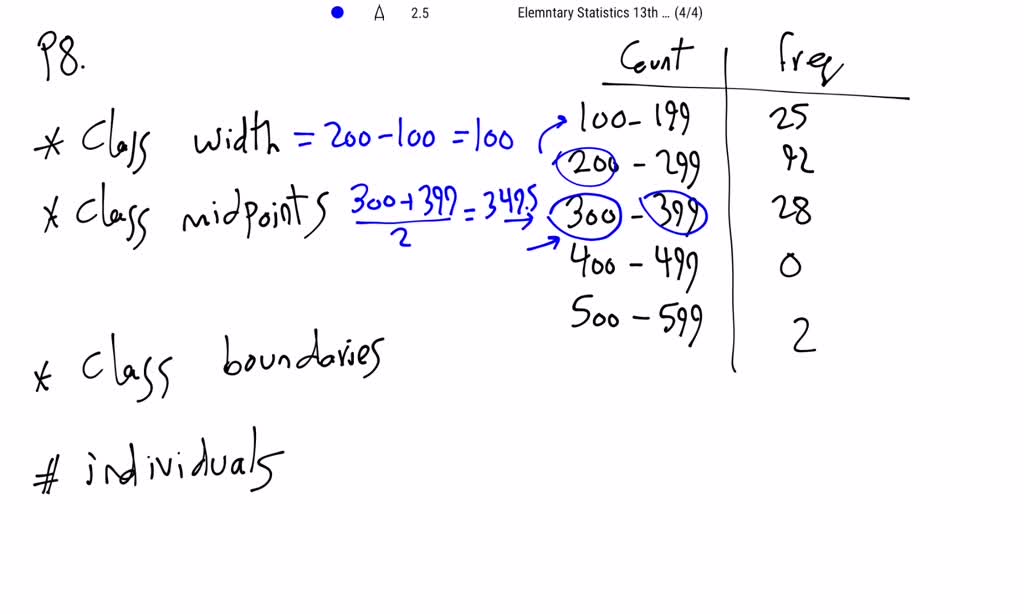 2.5 Elemntary Statistics 13th ... (4/4)
P8.
Count freq
* Class width = 200 - 100 = 100
* Class midpoints (300 + 399)/2 = 349.5
* Class boundaries
# individuals
100 - 199 25
200 - 299 92
300 - 399 28
400 - 499 0
500 - 599 2